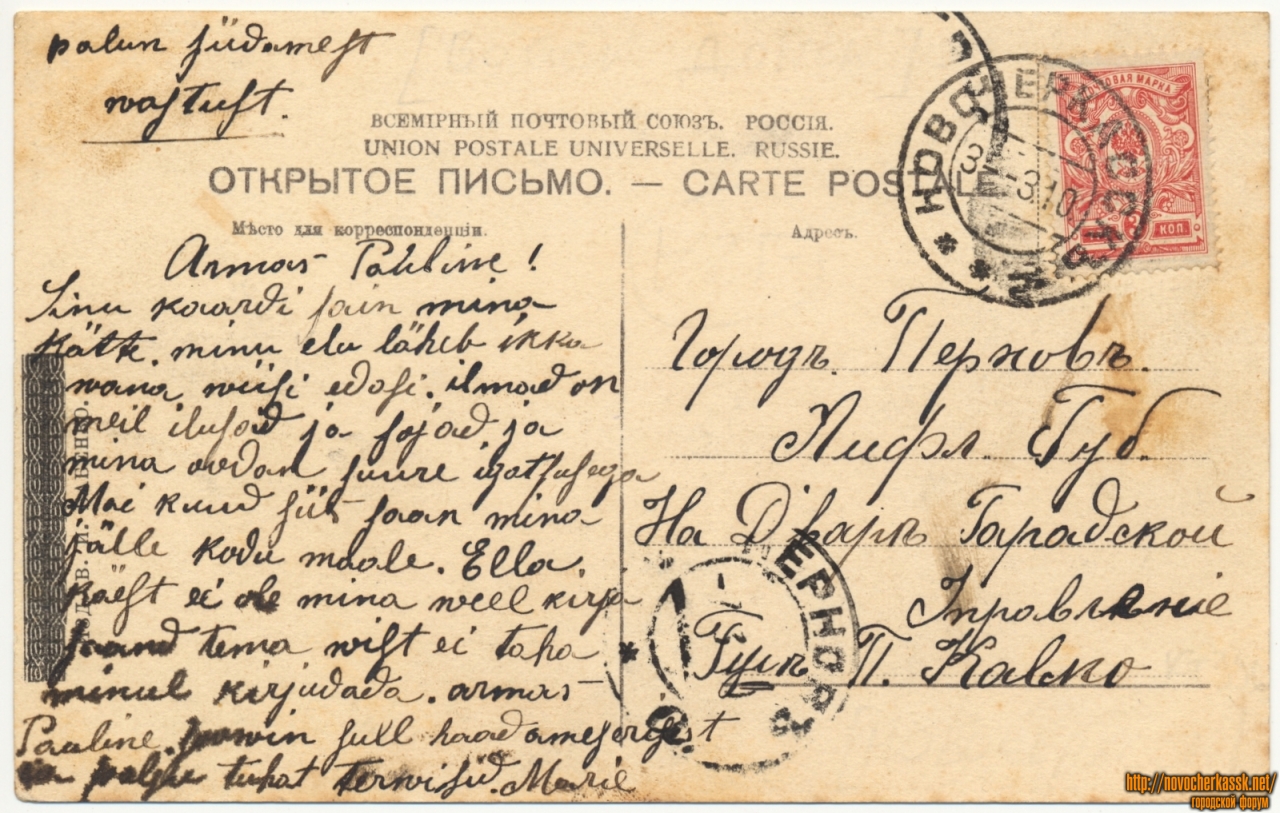 palun südamest
wastust.
ВСЕМІРНЫЙ ПОЧТОВЫЙ СОЮЗЪ. РОССІЯ.
UNION POSTALE UNIVERSELLE. RUSSIE.
ОТКРЫТОЕ ПИСЬМО. — CARTE POSTALE
Мѣсто для корреспонденціи.
Адресъ.
НОВОЧЕРКАССКЪ
3 3 10
КОП.
Armas Pauline!
Sinu kaardi sain mina
kätte. minu elu läheb ikka
wana wiisi edasi. ilmad on
meil ilusad ja sojad, ja
mina ootan suure igatsusega
Mai kuud siis saan mina
jälle kodu maale. Ella
käest ei ole mina weel kirja
saand tema wist ei taha
minul kirjudada. armas
Pauline. soowin sull haad amesergist
ja palju tuhat terwisid. Marie
Городъ. Перновъ.
Лифл. Губ.
На Дваръ Гарадской
Управленіе
П. Кавко
ПЕРНОВЪ
http://novocherkassk.net/
городской форум